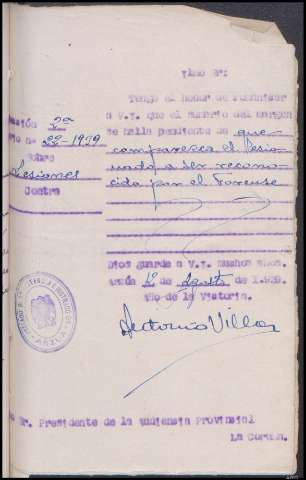 Ilmo Sr:
Tengo el honor de comunicar
a V.I. que el sumario del margen
se halla pendiente de que
comparezca el lesio-
nado a ser recono-
cido por el Forense
2ª
22-1939
Sobre
Lesiones
Contra
Dios guarde a V.I. muchos años.
1º de Agosto de 1.939.
Año de la Victoria.
Antonio Villar
Sr. Presidente de la Audiencia Provincial
La Coruña.